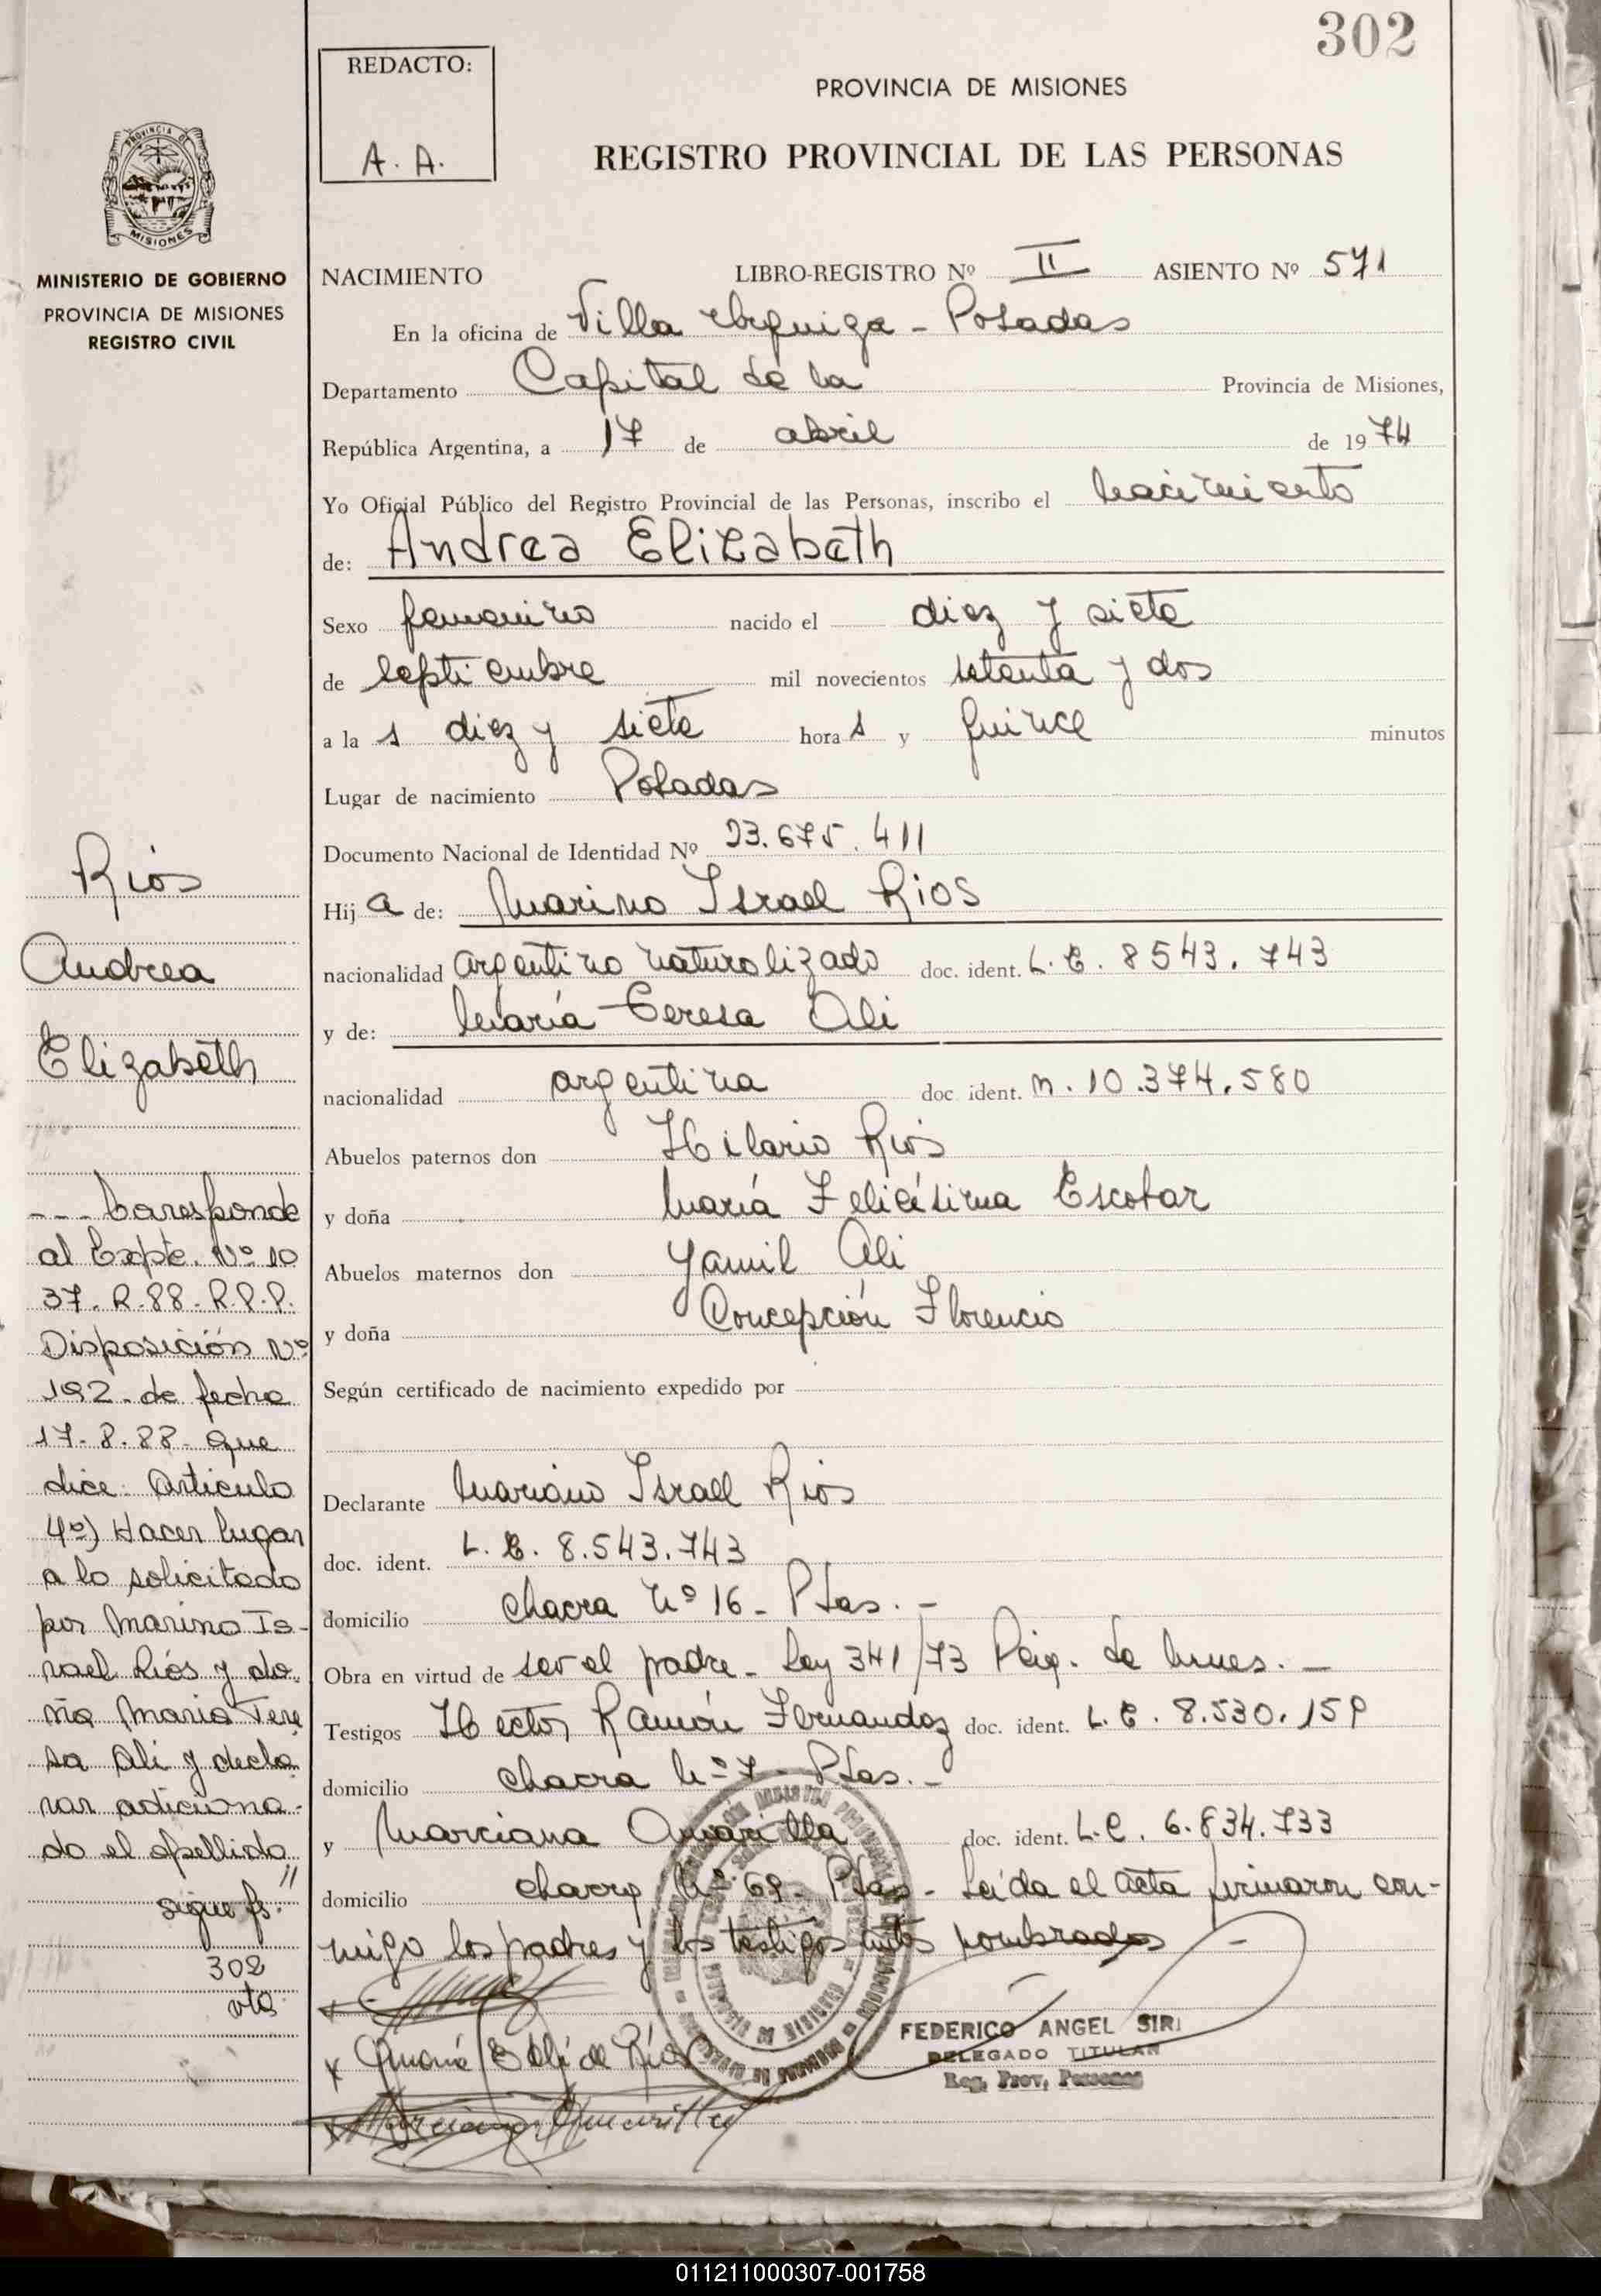 302
REDACTO:
A. A.
PROVINCIA DE MISIONES
REGISTRO PROVINCIAL DE LAS PERSONAS
PROVINCIA DE
MISIONES
MINISTERIO DE GOBIERNO
PROVINCIA DE MISIONES
REGISTRO CIVIL
NACIMIENTO LIBRO-REGISTRO Nº II ASIENTO Nº 571
En la oficina de Villa Urquiza - Posadas
Departamento Capital de la Provincia de Misiones,
República Argentina, a 17 de abril de 1974
Yo Oficial Público del Registro Provincial de las Personas, inscribo el nacimiento
de: Andrea Elizabeth
Sexo femenino nacido el diez y siete
de septiembre mil novecientos setenta y dos
a la s diez y siete hora s y quince minutos
Lugar de nacimiento Posadas
Documento Nacional de Identidad Nº 23.675.411
Hij a de: Marino Israel Rios
nacionalidad argentino naturalizado doc. ident. L. E. 8543.743
y de: María Teresa Ali
nacionalidad argentina doc. ident. n. 10.374.580
Abuelos paternos don Hilario Ríos
y doña María Felicísima Escobar
Abuelos maternos don Yamil Ali
y doña Concepción Florencio
Según certificado de nacimiento expedido por
Declarante Mariano Israel Rios
doc. ident. L. E. 8.543.743
domicilio chacra nº 16 - Pdas. -
Obra en virtud de ser el padre - Ley 341/73
Testigos Hector Ramón Fernandez doc. ident. L. E. 8.530.159
domicilio chacra nº 7 - Pdas. -
y Marciana Amarilla doc. ident. L. C. 6.834.733
domicilio chacra nº 69 - Pdas - Leída el acta firmaron con-
migo los padres y los testigos antes nombrados -
FEDERICO ANGEL SIRI
DELEGADO TITULAR
Reg. Prov. Personas
Ríos
Andrea
Elizabeth
--- Corresponde
al Expte. Nº 10
37. R. 88 - R.P.P.
Disposición Nº
192 - de fecha
17-8-88 - que
dice: Artículo
4º) Hacer lugar
a lo solicitado
por Marino Is-
rael Ríos y do-
ña María Tere
sa Ali y decla
rar adiciona-
do el apellido
" sigue fs.
302
vto.
011211000307-001758